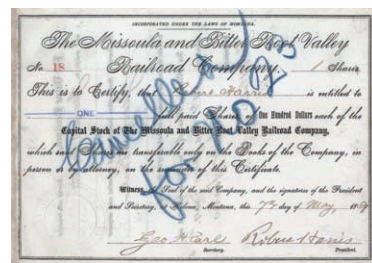 INCORPORATED UNDER THE LAWS OF MONTANA.
The Missoula and Bitter Root Valley
No. 18 Railroad Company. 1 Shares
This is to Certify, that Robert Harris is entitled to
ONE full paid Shares of One Hundred Dollars each of the
Capital Stock of The Missoula and Bitter Root Valley Railroad Company,
which said Shares are transferable only on the Books of the Company, in
person or by attorney, on the surrender of this Certificate.
Witness, the Seal of the said Company, and the signatures of the President
and Secretary, at Helena, Montana, this 7th day of May, 188
Geo H Earl Robert Harris
Secretary. President.
Cancelled
for No 25